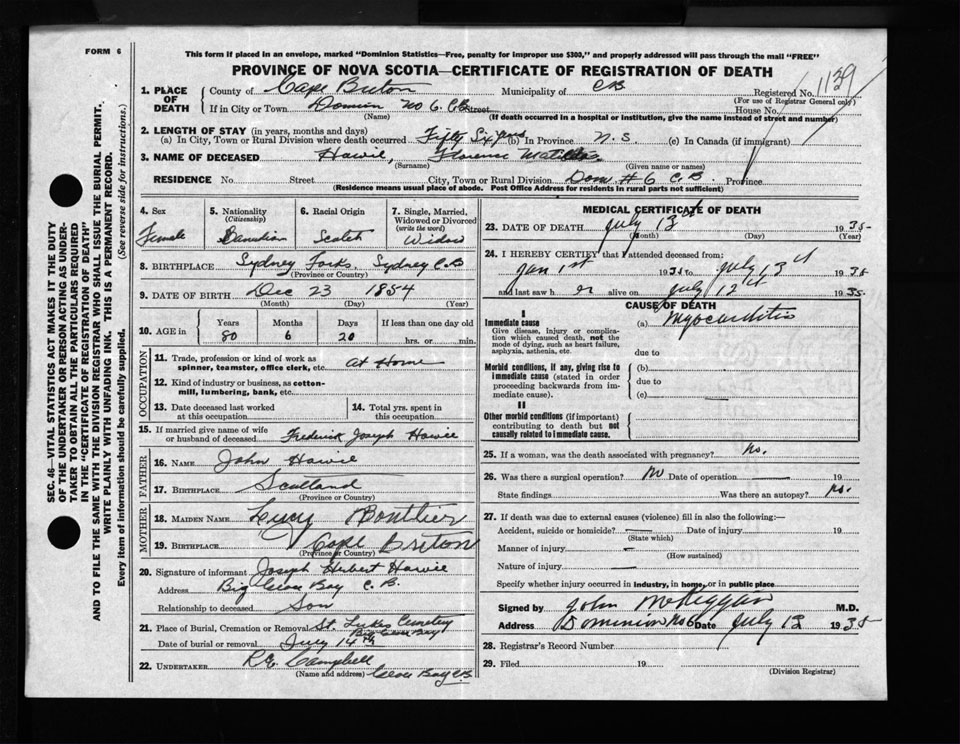 FORM 6
This form if placed in an envelope, marked "Dominion Statistics—Free, penalty for improper use $300," and properly addressed will pass through the mail "FREE"
PROVINCE OF NOVA SCOTIA—CERTIFICATE OF REGISTRATION OF DEATH
1139
1. PLACE OF DEATH
County of Cape Breton Municipality of CB Registered No.
(For use of Registrar General only)
If in City or Town Dominion No 6. CB Street House No.
(Name) (If death occurred in a hospital or institution, give the name instead of street and number)
2. LENGTH OF STAY (in years, months and days)
(a) In City, Town or Rural Division where death occurred Fifty Six yrs (b) In Province N.S. (c) In Canada (if immigrant)
3. NAME OF DECEASED Hawie, Florence Matilda
(Surname) (Given name or names)
RESIDENCE No. Street City, Town or Rural Division Dom # 6 C.B. Province
(Residence means usual place of abode. Post Office Address for residents in rural parts not sufficient)
4. Sex
Female
5. Nationality
(Citizenship)
Canadian
6. Racial Origin
Scotch
7. Single, Married, Widowed or Divorced
(write the word)
Widow
8. BIRTHPLACE Sydney Forks, Sydney C.B
(Province or Country)
9. DATE OF BIRTH Dec 23 1854
(Month) (Day) (Year)
10. AGE in
Years Months Days If less than one day old
80 6 20 hrs. or min.
OCCUPATION
11. Trade, profession or kind of work as spinner, teamster, office clerk, etc. At Home
12. Kind of industry or business, as cotton-mill, lumbering, bank, etc.
13. Date deceased last worked at this occupation
14. Total yrs. spent in this occupation
15. If married give name of wife or husband of deceased Frederick Joseph Hawie
FATHER
16. NAME John Hawie
17. BIRTHPLACE Scotland
(Province or Country)
MOTHER
18. MAIDEN NAME Lucy Boutlier
19. BIRTHPLACE Cape Breton
(Province or Country)
20. Signature of informant Joseph Hebert Hawie
Address Big Glace Bay C.B.
Relationship to deceased Son
21. Place of Burial, Cremation or Removal St. Lukes Cemetery
Big Glace Bay
Date of burial or removal July 14th
22. UNDERTAKER R.E. Campbell
(Name and address) Glace Bay CB
MEDICAL CERTIFICATE OF DEATH
23. DATE OF DEATH July 13th 1935
(Month) (Day) (Year)
24. I HEREBY CERTIFY that I attended deceased from:
Jan 1st 1935 to July 13th 1935
and last saw her alive on July 12th 1935.
CAUSE OF DEATH
I
Immediate cause
Give disease, injury or complication which caused death, not the mode of dying, such as heart failure, asphyxia, asthenia, etc.
(a) Myocarditis
due to
Morbid conditions, if any, giving rise to immediate cause (stated in order proceeding backwards from immediate cause).
(b)
due to
(c)
II
Other morbid conditions (if important) contributing to death but not causally related to immediate cause.
25. If a woman, was the death associated with pregnancy? No.
26. Was there a surgical operation? No Date of operation 19
State findings Was there an autopsy? No.
27. If death was due to external causes (violence) fill in also the following:—
Accident, suicide or homicide? Date of injury 19
(State which)
Manner of injury
(How sustained)
Nature of injury
Specify whether injury occurred in industry, in home, or in public place
Signed by John McKeggan M.D.
Address Dominion No 6 Date July 13 1935
28. Registrar's Record Number
29. Filed 19
(Division Registrar)
SEC. 46—VITAL STATISTICS ACT MAKES IT THE DUTY
OF THE UNDERTAKER OR PERSON ACTING AS UNDER-
TAKER TO OBTAIN ALL THE PARTICULARS REQUIRED
IN THE "CERTIFICATE OF REGISTRATION OF DEATH"
AND TO FILE THE SAME WITH THE DIVISION REGISTRAR WHO SHALL ISSUE THE BURIAL PERMIT.
WRITE PLAINLY WITH UNFADING INK. THIS IS A PERMANENT RECORD.
Every item of information should be carefully supplied. (See reverse side for instructions.)